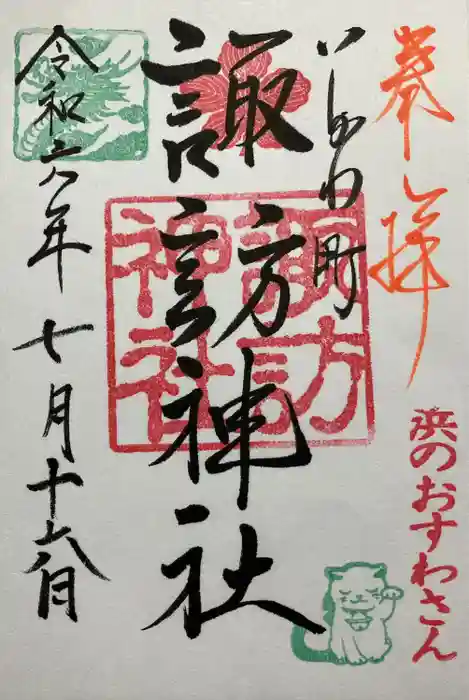 奉拝
浜のおすわさん
いしかわ町
諏訪神社
諏訪
神社
令和六年七月十六日